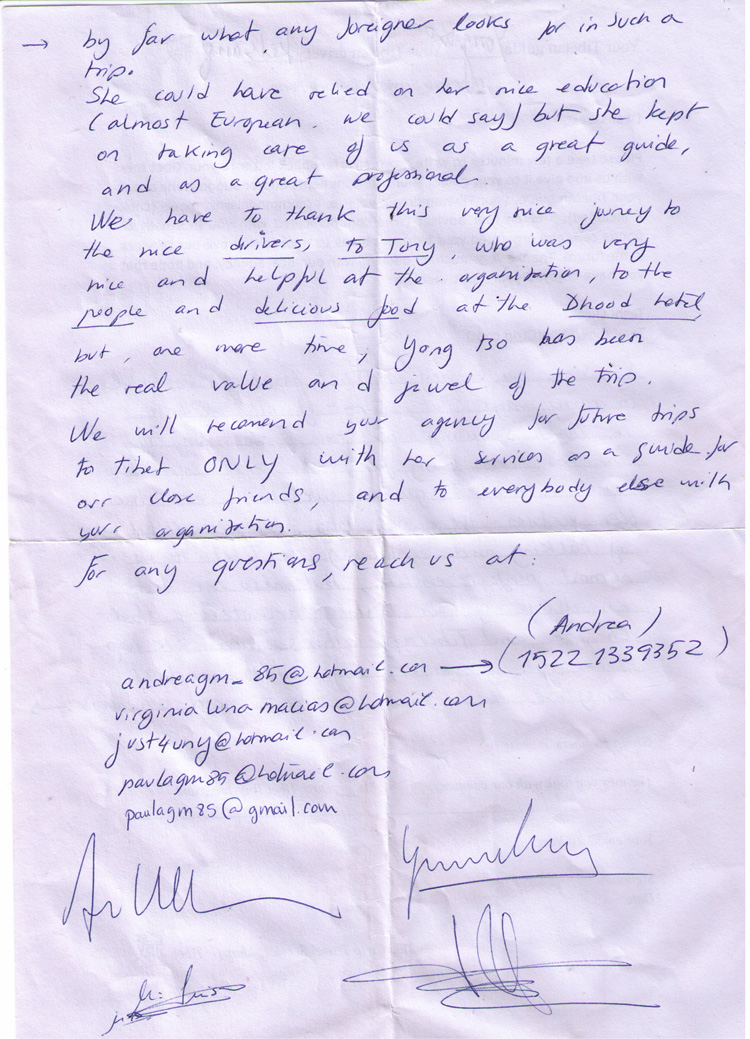 → by far what any foreigner looks for in such a
trip.
She could have relied on her nice education
(almost European. we could say) but she kept
on taking care of us as a great guide,
and as a great professional.
We have to thank this very nice jurney to
the nice drivers, to Tony, who was very
nice and helpful at the organization, to the
people and delicious food at the Dhood hotel,
but, one more time, Yong tso has been
the real value and jewel of the trip.
We will recomend your agency for future trips
to tibet ONLY with her services as a guide for
our close friends, and to everybody else with
your organization.
For any questions, reach us at:
(Andrea)
andreagm_85@hotmail.com → (15221339352)
virginia luna macias@hotmail.com
just4uny@hotmail.com
paulagm85@hotmail.com
paulagm85@gmail.com